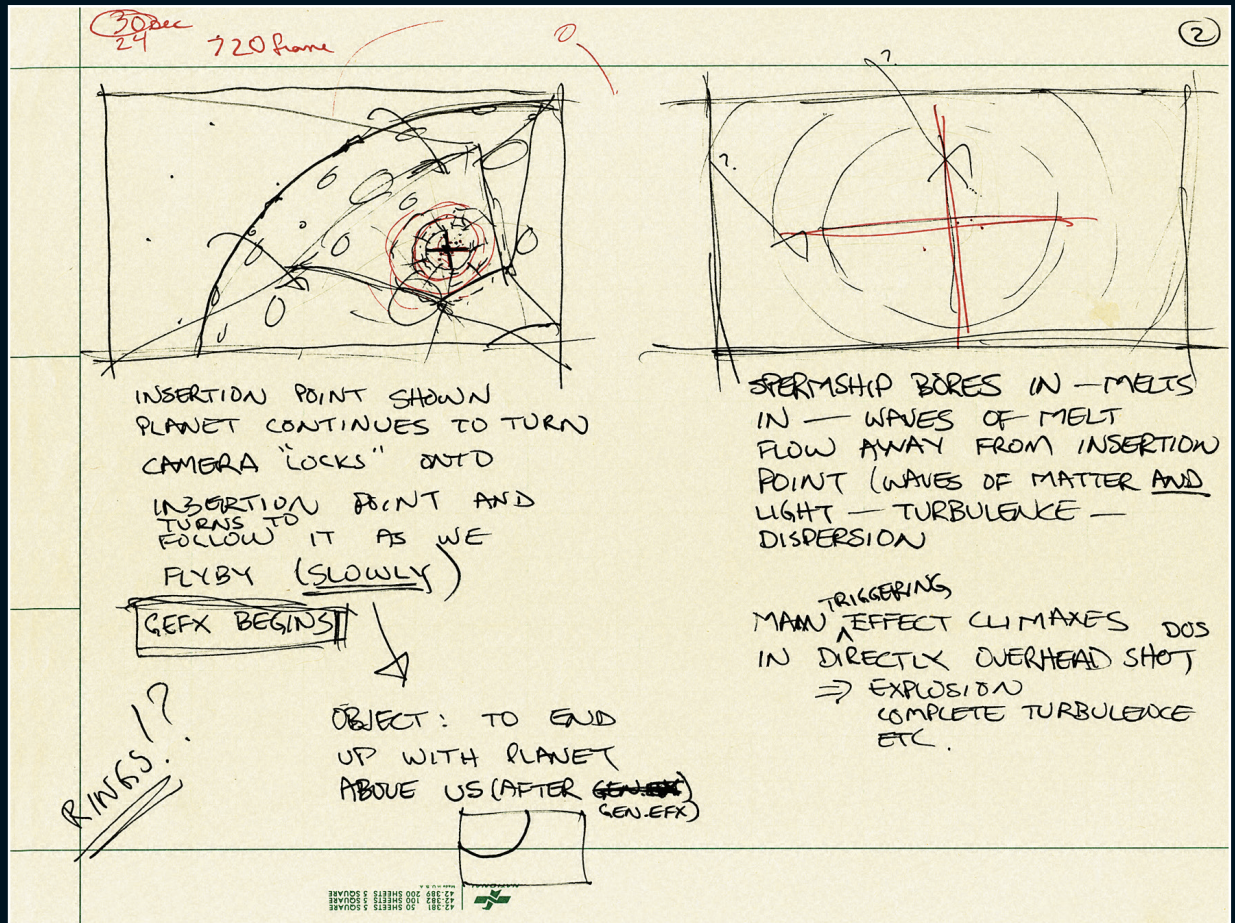 30 sec
24
720 frame
2
INSERTION POINT SHOWN
PLANET CONTINUES TO TURN
CAMERA "LOCKS" ONTO
INSERTION POINT AND
TURNS TO
FOLLOW IT AS WE
FLYBY (SLOWLY)
GEFX BEGINS
OBJECT: TO END
UP WITH PLANET
ABOVE US (AFTER
GEN.EFX)
RINGS!?
?
?
SPERMSHIP BORES IN — MELTS
IN — WAVES OF MELT
FLOW AWAY FROM INSERTION
POINT (WAVES OF MATTER AND
LIGHT — TURBULENCE —
DISPERSION
TRIGGERING
MAIN ^ EFFECT CLIMAXES DOS
IN DIRECTLY OVERHEAD SHOT
⇒ EXPLOSION
COMPLETE TURBULENCE
ETC.
42-381 50 SHEETS 5 SQUARE
42-382 100 SHEETS 5 SQUARE
42-389 200 SHEETS 5 SQUARE
NATIONAL